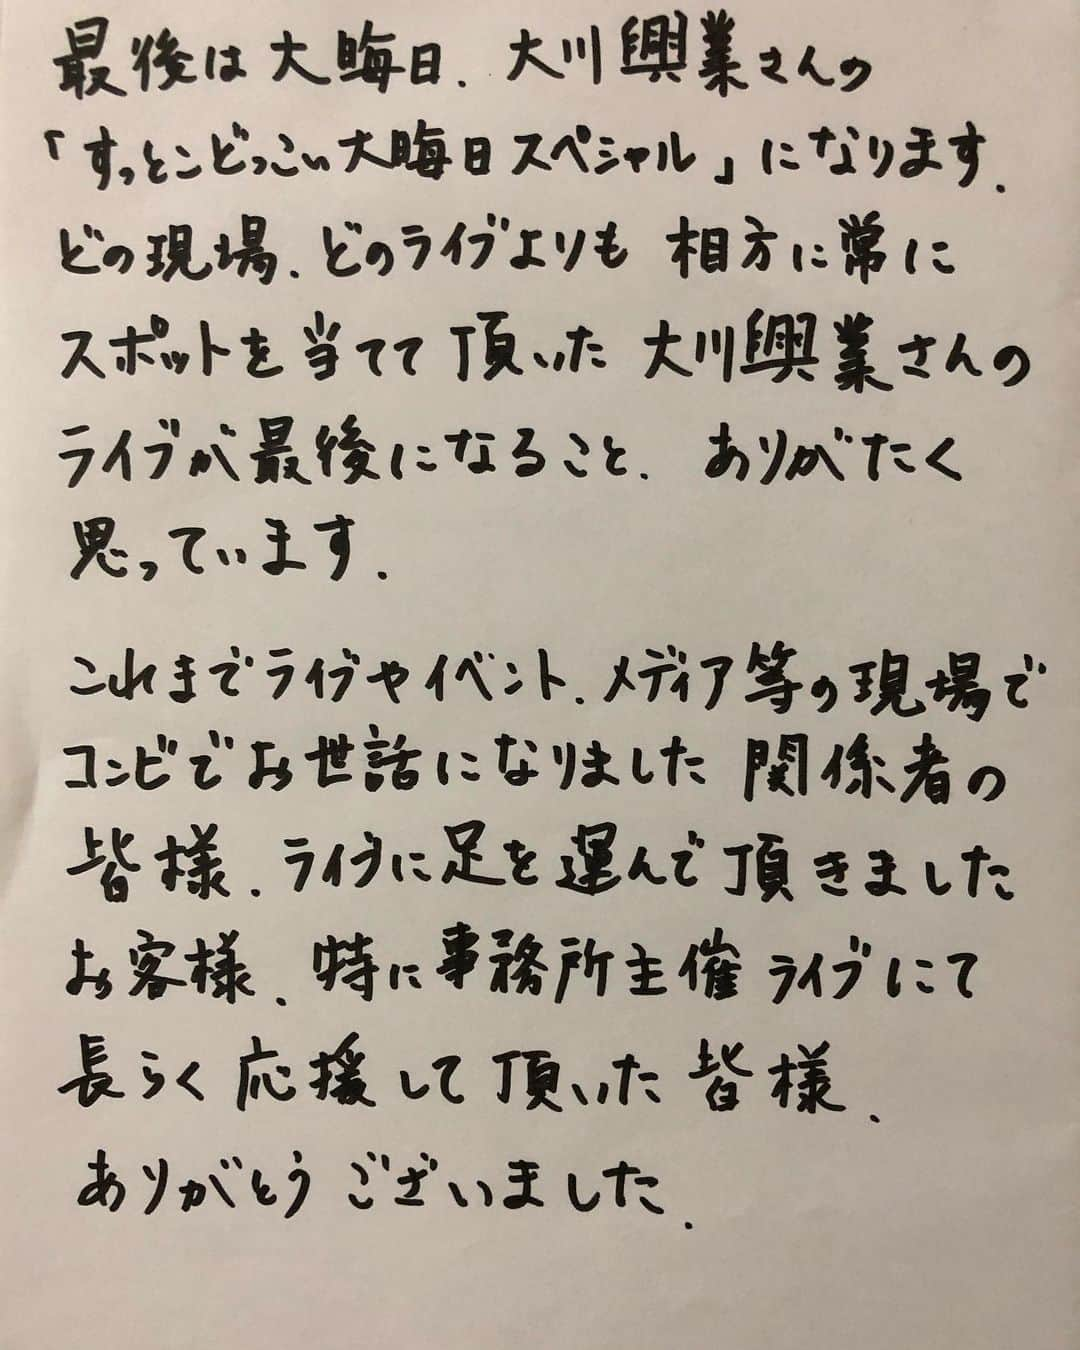 最後は大晦日、大川興業さんの
「すっとこどっこい大晦日スペシャル」になります。
どの現場、どのライブよりも 相方に常に
スポットを当てて頂いた 大川興業さんの
ライブが最後になること、ありがたく
思っています。
これまでライブやイベント、メディア等の現場で
コンビでお世話になりました 関係者の
皆様、ライブに足を運んで頂きました
お客様、特に事務所主催ライブにて
長らく応援して頂いた皆様、
ありがとうございました。